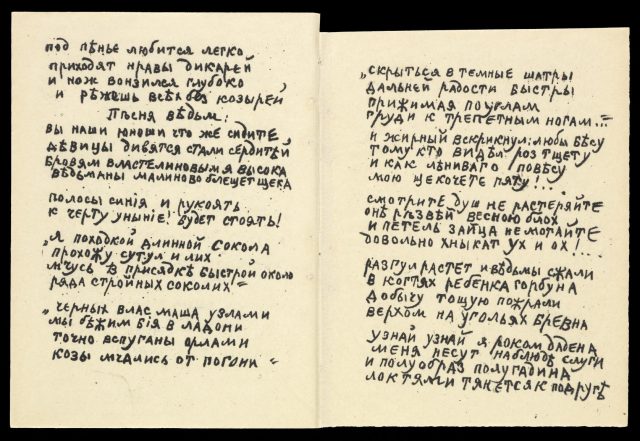 под пѣнье любится легко
приходят нравы дикарей
и нож вонзился глубоко
и рѣжешь всѣх без козырей
Пѣсня вѣдьм:
вы наши юноши что же сидите
дѣвицы дивятся стали сердитей
бровям властелиновым я высока
вѣдьманы малиново блещет щека
полосы синія и рукоять
к черту уныніе! будет стоять!
„я походкой длинной сокола
прохожу сутул и лих
мчусь в присядке быстрой около
ряда стройных соколих"
„черных влас маша узлами
мы бѣжим бія в ладони
точно вспуганы орлами
козы мчались от погони"
„скрыться в темные шатры
дальней радости быстры
прижимая по углам
груди к трепетным ногам..."
и жирный вскрикнул: любы бѣсу
тому кто видѣл роз тщету
и как лѣниваго повѣсу
мою щекочете пяту!...
смотрите душ не растеряйте
онѣ рѣзвѣй весною блох
и петель зайца не мотайте
довольно хныкат ух и ох!...
разгул растет и вѣдьмы сжали
в когтях ребенка горбуна
добычу тощую пожрали
верхом на угольях бревна
узнай узнай я роком дадена
меня несут на блюдѣ слуги
и полуобраз полугадина
локтями тянется к подругѣ